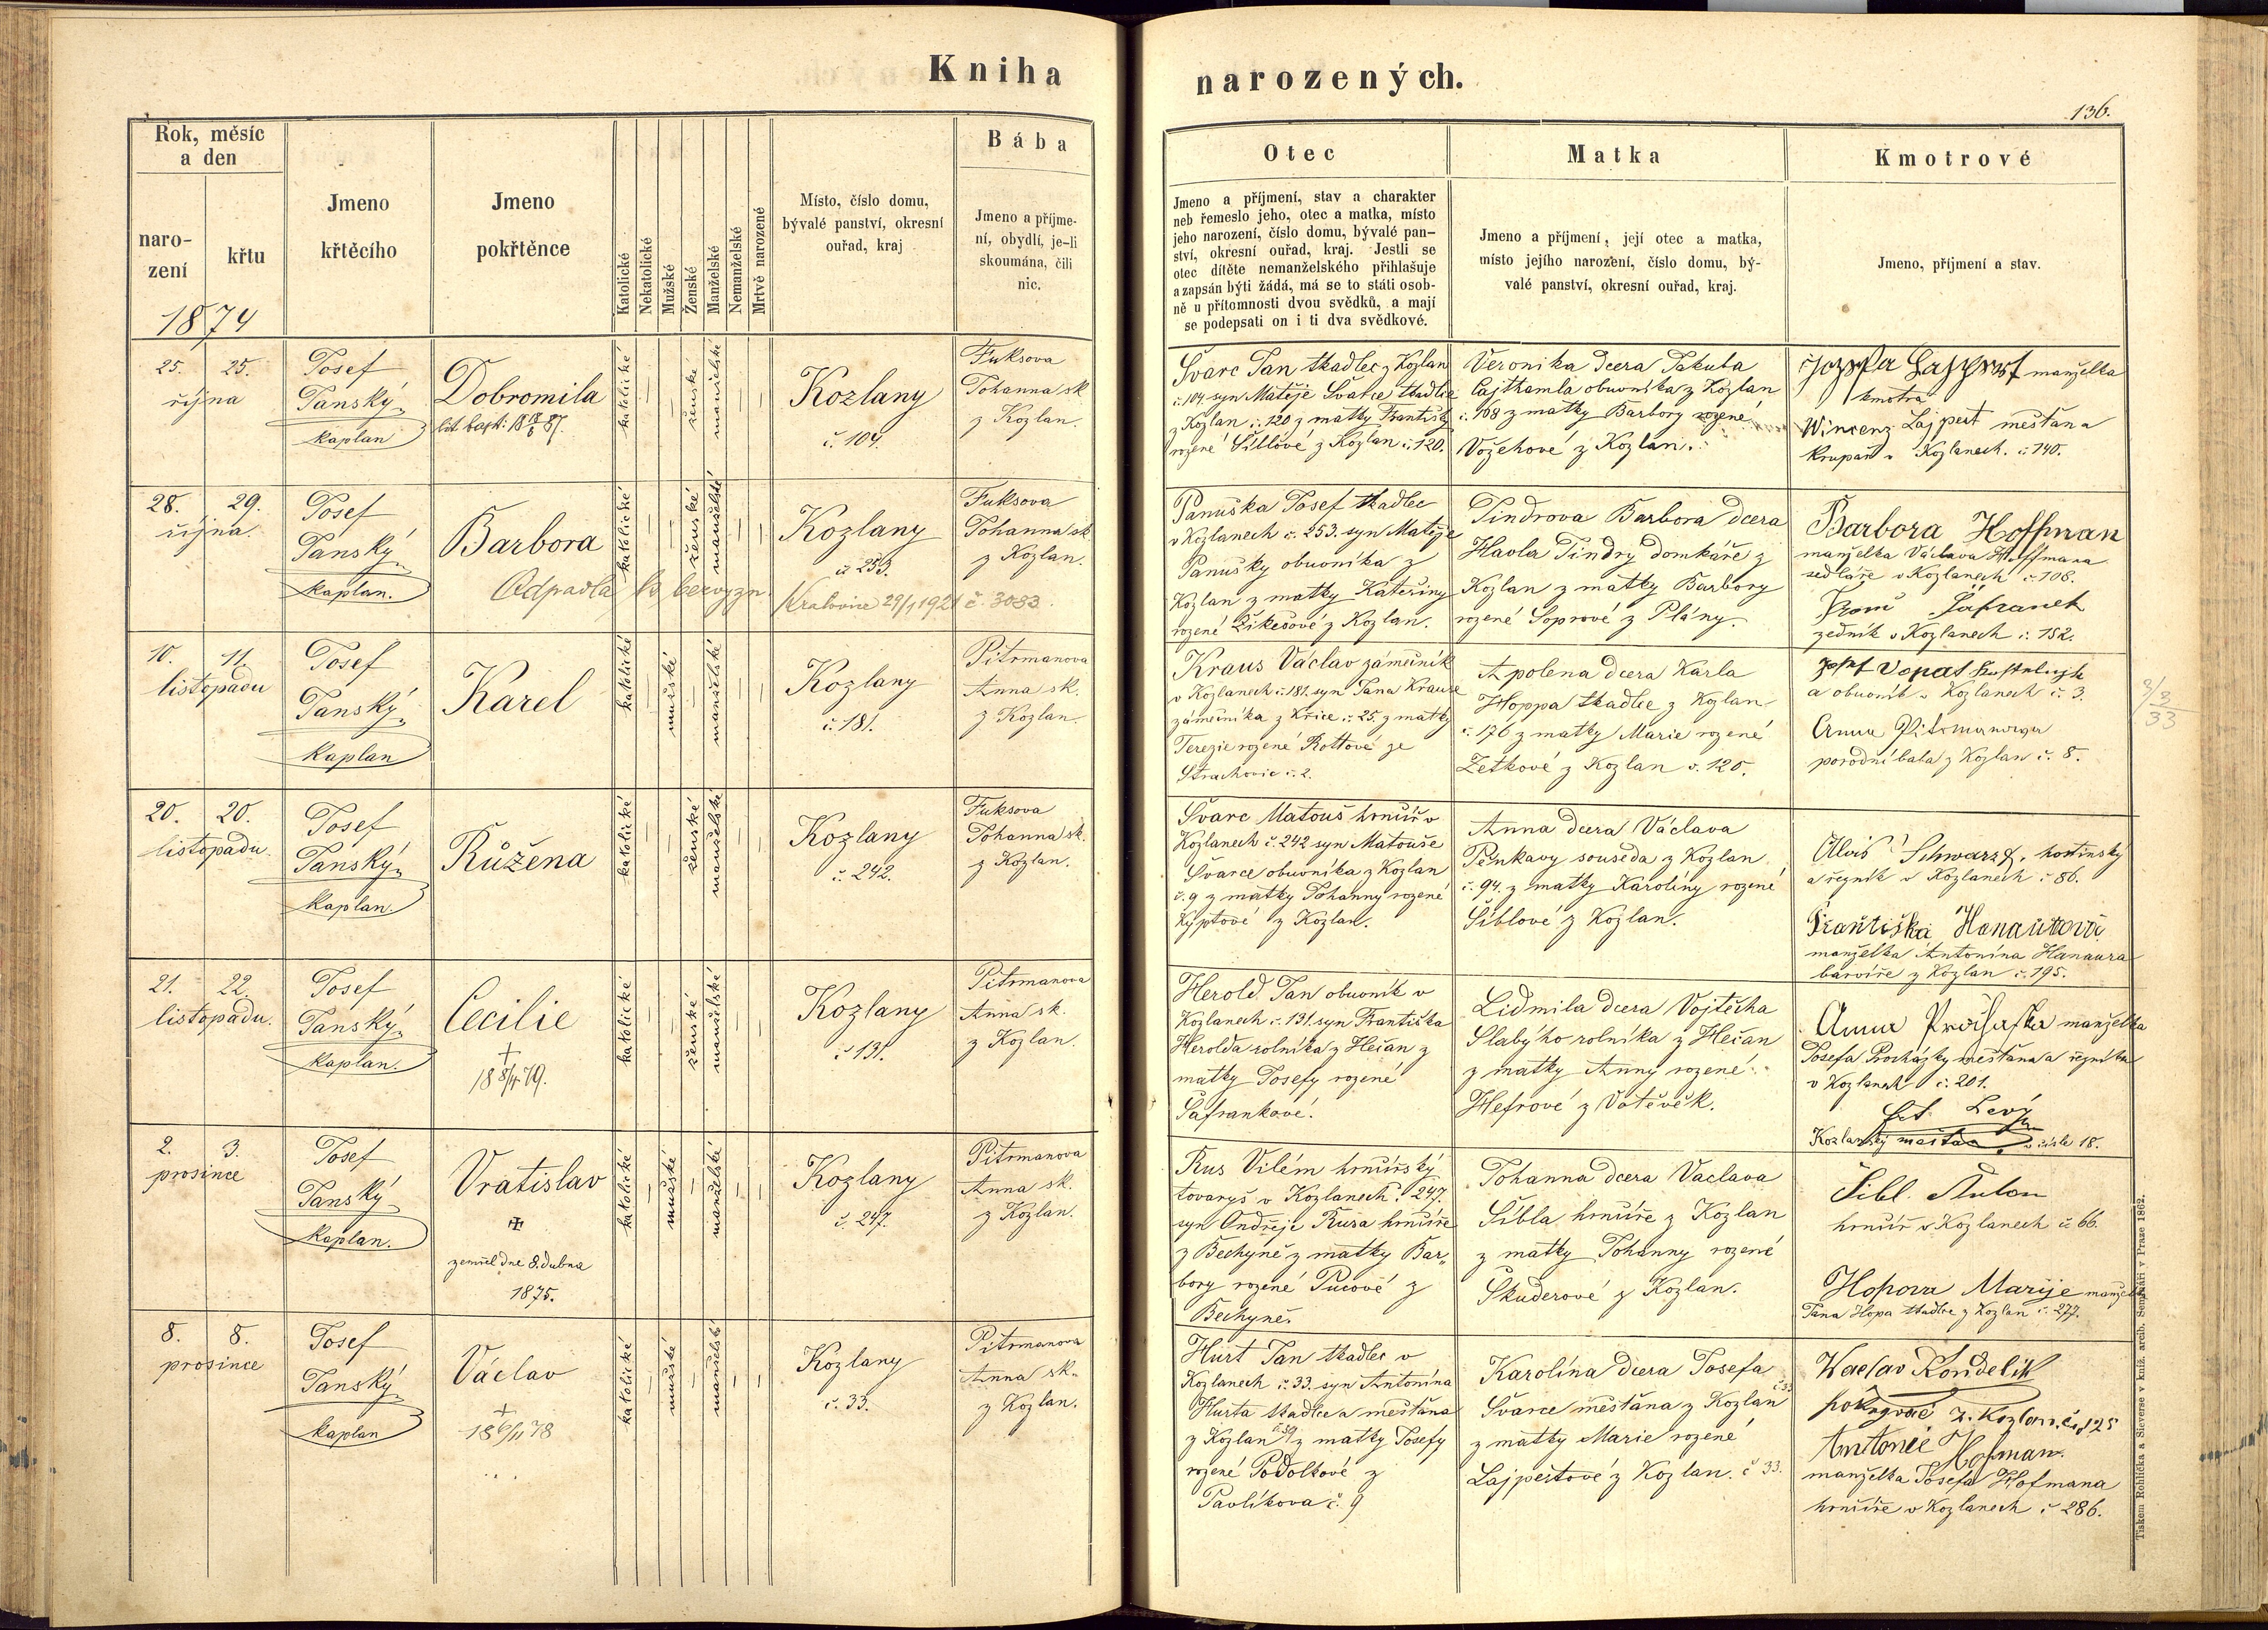 Kniha
Rok, měsíc
a den
naro-
zení
křtu
Jmeno
křtěcího
Jmeno
pokřtěnce
Katolické
Nekatolické
Mužské
Ženské
Manželské
Nemanželské
Mrtvě narozené
Místo, číslo domu,
bývalé panství, okresní
ouřad, kraj
Bába
Jmeno a příjme-
ní, obydlí, je-li
skoumána, čili
nic.
1874
25. 25.
října
Josef
Janský
kaplan
Dobromila
katolické
ženské
manželské
Kozlany
č. 104.
Fuksova
Johanna sk
z Kozlan.
28. 29.
října.
Josef
Janský
kaplan.
Barbora
katolické
ženské
manželské
Kozlany
č 253.
Fuksova
Johanna sk.
z Kozlan.
Odpadla
Kralovice 29/1 1921 č. 3083.
10. 11.
listopadu
Josef
Janský
kaplan
Karel
katolické
mužské
manželské
Kozlany
č. 181.
Pitrmanova
Anna sk.
z Kozlan.
20. 20.
listopadu.
Josef
Janský
kaplan.
Růžena
katolické
ženské
manželské
Kozlany
č. 242.
Fuksova
Johanna sk.
z Kozlan.
21. 22.
listopadu.
Josef
Janský
kaplan.
Cecilie
katolické
ženské
manželské
Kozlany
č 131.
Pitrmanova
Anna sk.
z Kozlan.
2. 3.
prosince
Josef
Janský
kaplan.
Vratislav
zemřel dne 8. dubna
1875.
katolické
mužské
manželské
Kozlany
č. 247.
Pitrmanova
Anna sk.
z Kozlan.
8. 8.
prosince
Josef
Janský
kaplan
Václav
katolické
mužské
manželské
Kozlany
č. 33.
Pitrmanova
Anna sk.
z Kozlan.
narozených.
136.
Otec
Jmeno a příjmení, stav a charakter
neb řemeslo jeho, otec a matka, místo
jeho narození, číslo domu, bývalé pan-
ství, okresní ouřad, kraj. Jestli se
otec dítěte nemanželského přihlašuje
a zapsán býti žádá, má se to státi osob-
ně u přítomnosti dvou svědků, a mají
se podepsati on i ti dva svědkové.
Matka
Jmeno a příjmení, její otec a matka,
místo jejího narození, číslo domu, bý-
valé panství, okresní ouřad, kraj.
Kmotrové
Jmeno, příjmení a stav.
Švarc Jan tkadlec z Kozlan
č. 104 syn Matěje Švarce tkadlce
z Kozlan č. 120 z matky Františky
rozené Šíblové z Kozlan č. 120.
Veronika dcera Jakuba
Cajthamla obuvníka z Kozlan
č. 108 z matky Barbory rozené
Vožehové z Kozlan.
manželka
kmotra
Wincenz Lajpert měšťana
krupař v Kozlanech. č. 140.
Panuška Josef tkadlec
v Kozlanech č. 253. syn Matěje
Panušky obuvníka z
Kozlan z matky Kateřiny
rozené Žikešové z Kozlan.
Jindrova Barbora dcera
Havla Jindry domkáře z
Kozlan z matky Barbory
rozené Soprové z Plány.
Barbora Hoffman
manželka Václava Hoffmana
sedláře v Kozlanech č. 108.
Šafranek
zedník v Kozlanech č. 182.
Kraus Václav zámečník
v Kozlanech č. 181. syn Jana Krause
zámečníka z Křice č. 25. z matky
Terezie rozené Rottové ze
Strachovic č. 2.
Apolena dcera Karla
Hoppa tkadlce z Kozlan
č. 176 z matky Marie rozené
Zetkové z Kozlan č. 120.
Josef Vopat
a obuvník v Kozlanech č. 3.
Anna Pitrmanova
porodní bába z Kozlan č. 8.
2/3
33
Švarc Matouš hrnčíř v
Kozlanech č. 242 syn Matouše
Švarce obuvníka z Kozlan
č. 9 z matky Johanny rozené
Kyptové z Kozlan.
Anna dcera Václava
Pěnkavy souseda z Kozlan
č. 94. z matky Karolíny rozené
Šíblové z Kozlan.
Alois Schwarz, hostinský
a řezník v Kozlanech č 86.
Františka Hanaurova
manželka Antonína Hanaura
barvíře z Kozlan č. 195.
Herold Jan obuvník v
Kozlanech č. 131. syn Františka
Herolda rolníka z Hečan z
matky Josefy rozené
Šafrankové.
Lidmila dcera Vojtěcha
Slabýho rolníka z Hečan
z matky Anny rozené
Hefrové z Votěvěk.
Anna manželka
Josefa Procházky měšťana a řezníka
v Kozlanech č. 201.
Kozlanský v čísle 18.
Rus Vilém hrnčířský
tovaryš v Kozlanech č. 247.
syn Ondřeje Rusa hrnčíře
z Bechyně z matky Bar„
bory rozené Pucové z
Bechyně.
Johanna dcera Václava
Šíbla hrnčíře z Kozlan
z matky Johanny rozené
Škuderové z Kozlan.
Šibl. Anton
hrnčíř v Kozlanech č 66.
Hopova Marije manželka
Jana Hopa tkadlce z Kozlan č. 277.
Hurt Jan tkadlec v
Kozlanech č. 33. syn Antonína
Hurta tkadlce a měšťana
z Kozlan č 39 z matky Josefy
rozené Podolkové z
Pavlíkova č. 9
Karolína dcera Josefa
Švarce měšťana z Kozlan č 33
z matky Marie rozené
Lajpertové z Kozlan. č 33.
Waclav Kondelik
z. Kozlan. č. 125
Antonie Hofman.
manželka Josefa Hofmana
hrnčíře v Kozlanech č 286.
Tiskem Rohlíčka a Sieverse v kníž. arcib. Semináři v Praze 1862.